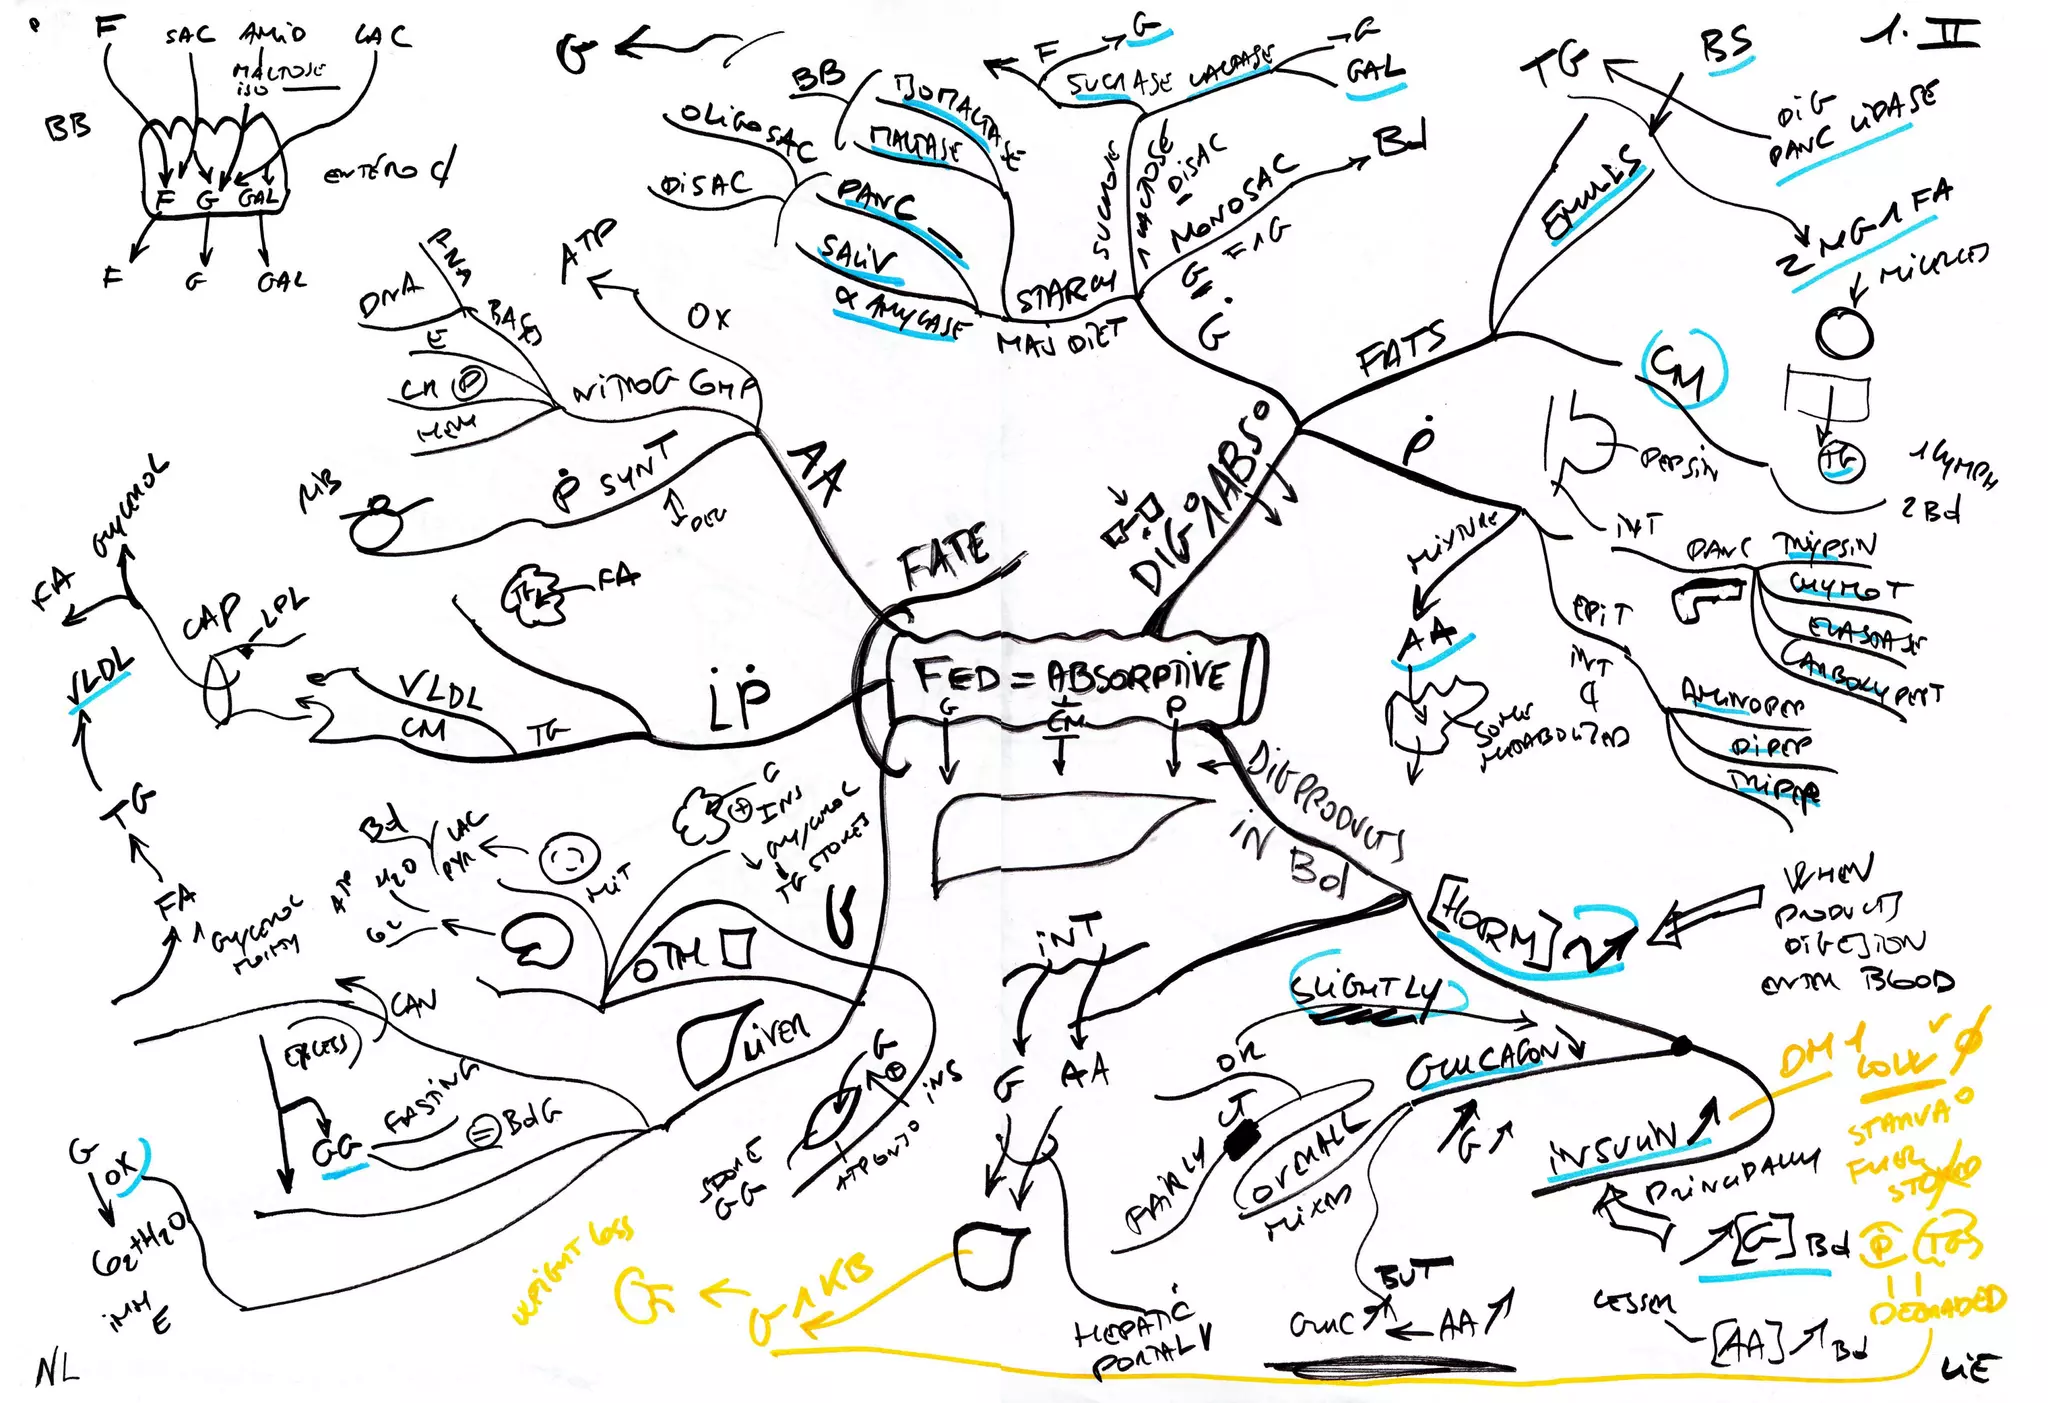 F
SAC
AMiD
LAC
MALTOSE
iSO
BB
ENTERO
F G GAL
F
G
GAL
G
BB
ISOMALTASE
MALTASE
OLiGOSAC
DiSAC
PANC
SALiV
α AMYLASE
STARCH
MAJ DIET
F
G
SUCRASE
LACTASE
G
GAL
SUCROSE
1 LACTOSE
DiSAC
MONOSAC
Bd
G F1G
G
TG
BS
1. II
DiG
PANC LiPASE
EMULS
2 MG 1 FA
MiCELLES
FATS
CM
TG
1 LYMPH
2 Bd
P
PEPSiN
iNT
PANC
TRYPSiN
CHYMOT
ELASTASE
CARBOXYPEPT
MiXTURE
AA
SOME
METABOLIZED
EPiT
iNT
AMINOPEP
DiPEP
TRiPEP
DiG 1 ABS
FATE
AA
OX
ATP
NiTROG CMP
BASES
RNA
DNA
E
CR P
HEM
P SYNT
DEG
RiB
TG
FA
LP
TG
VLDL
CM
CAP
LPL
GLYCEROL
FA
VLDL
TG
FA
1 GLYCEROL
MOiETY
FED = ABSORPTiVE
G
CM
P
G
G
INS
GLYCEROL
TG STORES
MiT
LAC
PYR
Bd
H2O
ATP
OTH
LiVER
CAN
EXCESS
FASTiNG
GG
BdG
G
OX
CO2+H2O
iMM
E
G
iNS
STORE
GG
DiG PRODUCTS
iN Bd
iNT
G
AA
HEPATiC
PORTAL V
[HORM]
WHEN
PRODUCTS
DiGESiON
ENTER BLOOD
SLiGHTLY
OR
GLUCAGON
G
FAiRLY
CT
OVERALL
MiXED
BUT
GLUC
AA
iNSULiN
PRiNCiPALLY
[G] Bd
LESSER
[AA] Bd
DM 1
LOW
STARVA
FUEL
STORED
P TG
DEGRADED
G 1 KB
G
WEiGHT LOSS
NL
LiE